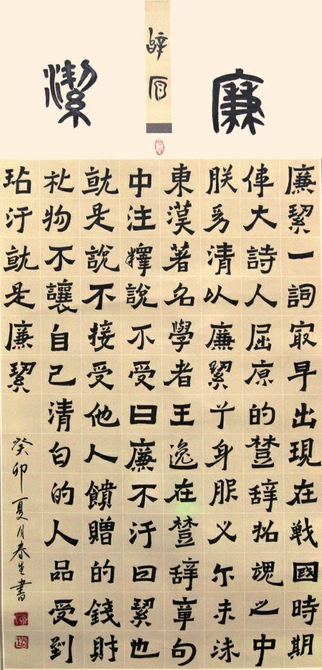 廉潔
廉絜一詞冣早出現在戰國時期
偉大詩人屈原的楚辭招魂之中
朕幼清以廉絜兮身服义尔未沬
東漢著名學者王逸在楚辭章句
中注釋說不受曰廉不汙曰絜也
就是說不接受他人饋贈的錢財
礼物不讓自己清白的人品受到
玷汙就是廉絜
癸卯夏月春生書